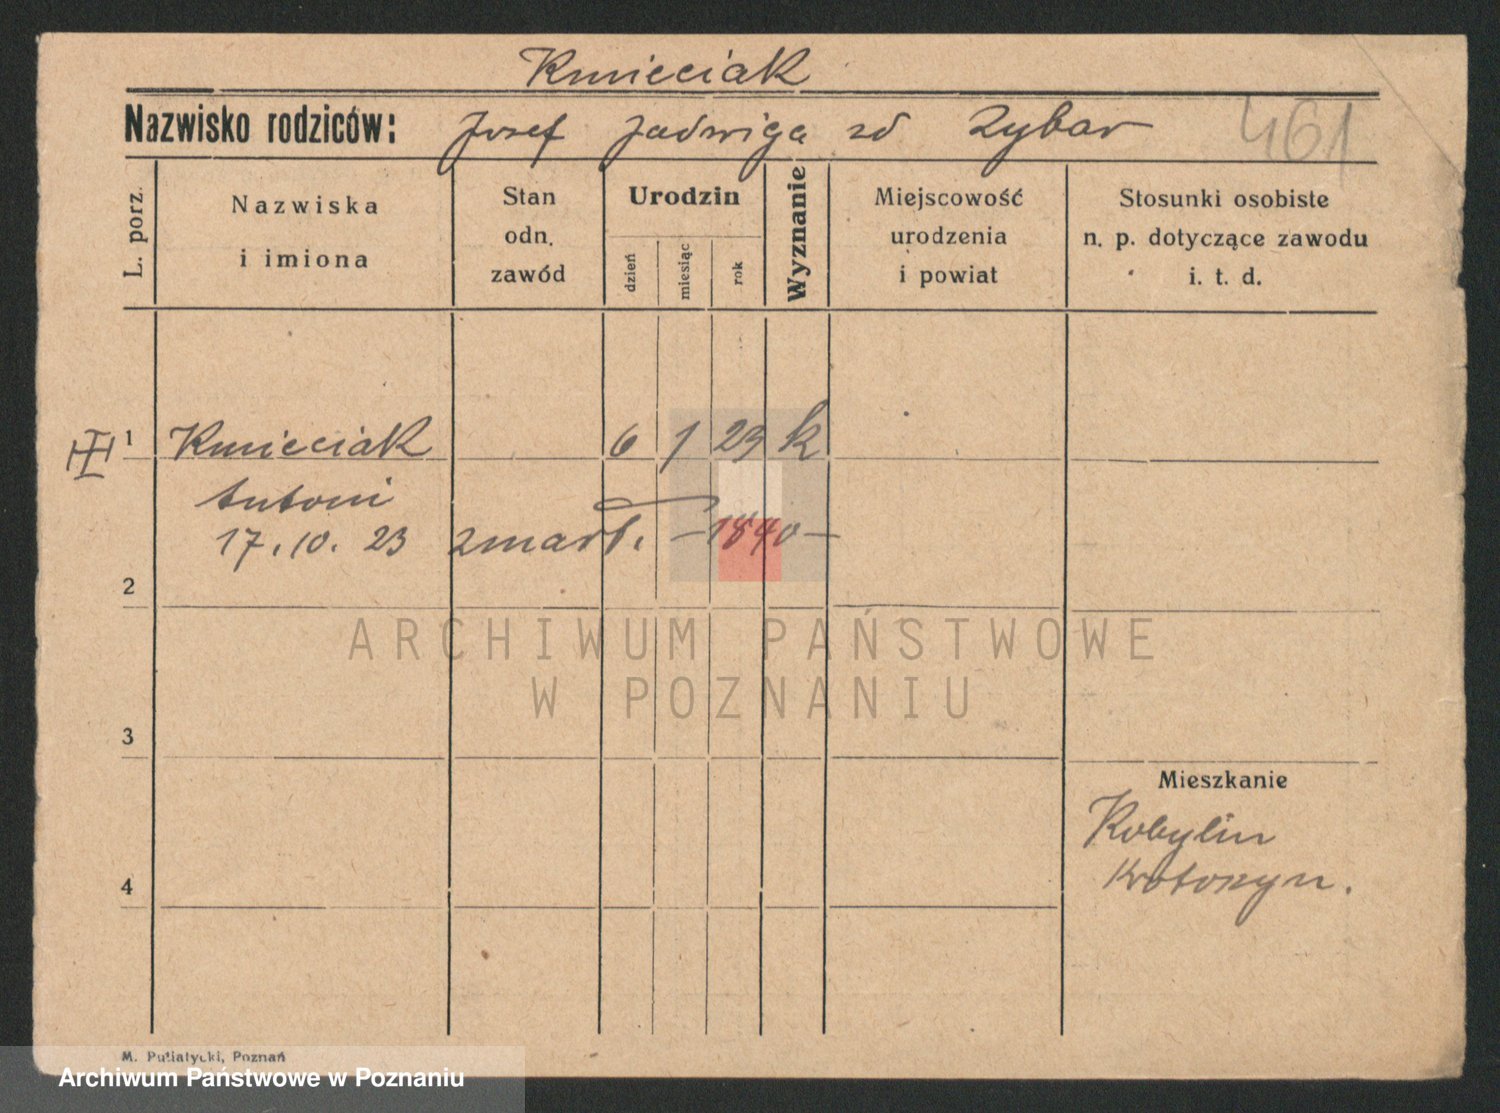 Kmieciak
Nazwisko rodziców: Josef Jadwiga zd Rybar
461
L. porz.
Nazwiska
i imiona
Stan
odn.
zawód
Urodzin
dzień
miesiąc
rok
Wyznanie
Miejscowość
urodzenia
i powiat
Stosunki osobiste
n. p. dotyczące zawodu
i. t. d.
1 Kmieciak 6 1 23 k
Antoni
17.10.23 zmarł. -1840-
2
3
4
Mieszkanie
Kobylin
Krotoszyn.
ARCHIWUM PAŃSTWOWE
W POZNANIU
M. Putiatycki, Poznań
Archiwum Państwowe w Poznaniu